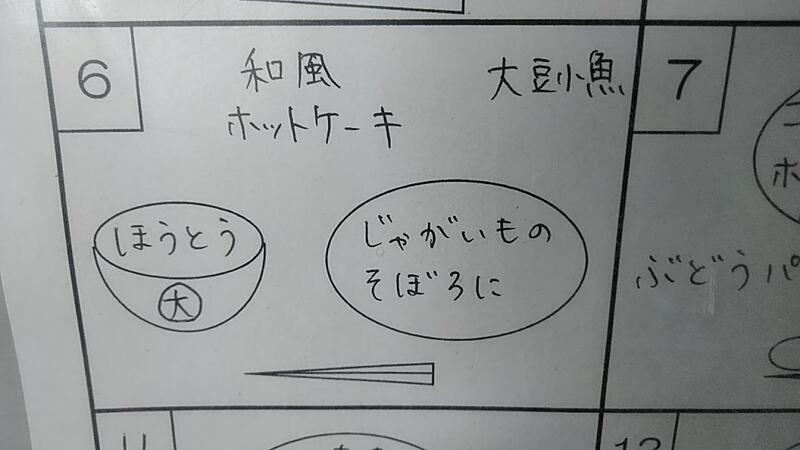 6
和風
ホットケーキ
大豆小魚
ほうとう
大
じゃがいもの
そぼろに
7
ホ
ぶどうパ
11
12